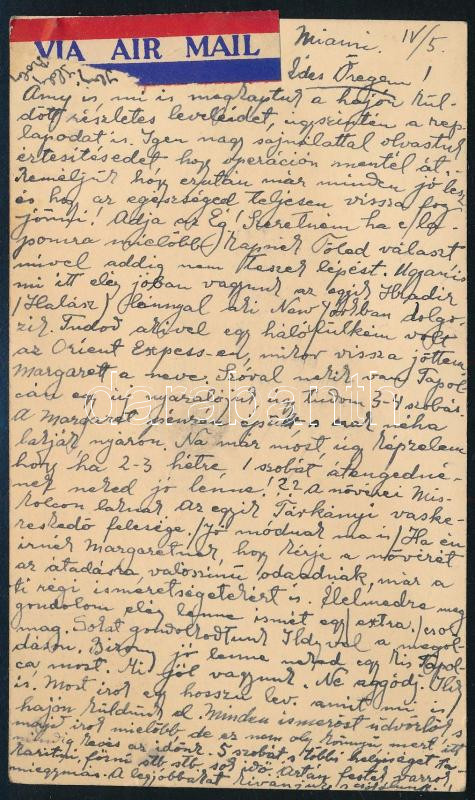 VIA AIR MAIL
Miami. IV/5.
Édes Öregem!
Amy is, mi is megkaptuk a hajón kül-
dött részletes leveleidet, úgyszintén a rep.
lapodat is. Igen nagy sajnálattal olvastuk
értesítésedet hogy operáción mentél át.
Reméljük hogy ezután már minden jó lesz
és hogy az egészséged teljesen vissza fog
jönni! Adja az Ég! Szeretném ha e la-
pomra mielőbb kapnék Tőled választ
mivel addig nem teszek lépést. Ugyanis
mi itt elég jóban vagyunk az egyik Hradir
/Halász/ lánnyal aki New Yorkban dolgo-
zik. Tudod akivel egy hálófülkém volt
az Orient Expess-en, mikor vissza jöttem.
Margarett a neve. Szóval nekik van Tapol-
cán egy új nyaralójuk úgy tudom 3-4 szobás.
A Margaret pénzén épült, s csak néha
lakják nyáron. Na már most, úgy képzelem
hogy ha 2-3 hétre, 1 szobát átengedné-
nek neked jó lenne! ?? A nővérei Mis-
kolcon laknak az egyik Tárkányi vaske-
reskedő felesége. /Jó módnak ma is/ Ha én
írnék Margaretnek, hogy kérje a nővérét
az átadásra valószínű odaadnák, már a
ti régi ismeretségetekért is. Élelmedre meg
gondolom elég lenne ismét egy /extra/ cso-
mag. Sokat gondolkodtunk Ildyval a megol-
dáson. Bizony jó lenne neked egy kis Tapol-
ca most. Mi jól vagyunk. Ne aggódj. Ildy
is. Most írok egy hosszú lev. amit mi is
hajón küldünk el. Minden ismerőst üdvözlök, s
majd írok mielőbb, de ez nem oly könnyű mert itt
kevés az időnk. 5 szobát s többi helyiséget ta-
karítni, főzni stb stb sok idő. Aztán festek, varrok
miegymás. A legjobbakat kívánjuk s
darabanth